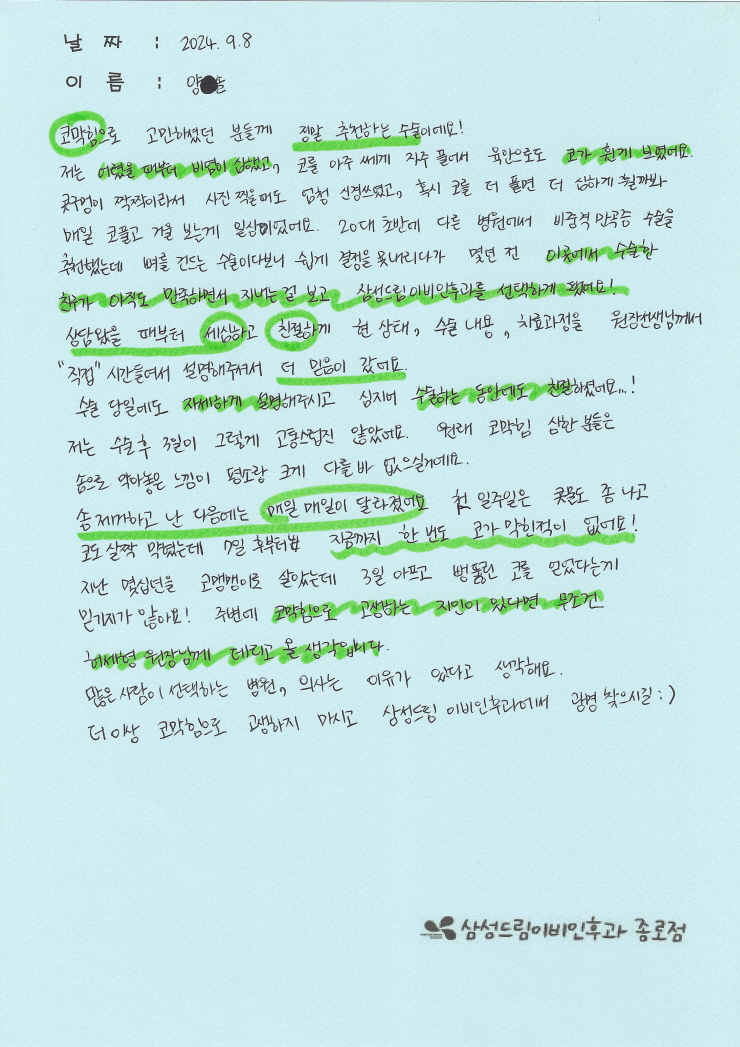 날 짜 : 2024. 9. 8
이 름 : 양 솔
코막힘으로 고민하셨던 분들께 정말 추천하는 수술이에요!
저는 어렸을 때부터 비염이 심했고, 코를 아주 쎄게 자주 풀어서 육안으로도 코가 휜게 보였어요.
콧구멍이 짝짝이라서 사진 찍을때도 엄청 신경쓰였고, 혹시 코를 더 풀면 더 심하게 휠까봐
매일 코풀고 거울 보는게 일상이었어요. 20대 초반에 다른 병원에서 비중격 만곡증 수술을
추천했는데 뼈를 건드는 수술이다보니 쉽게 결정을 못내리다가 몇년 전 이곳에서 수술한
친구가 아직도 만족하면서 지내는걸 보고 삼성드림이비인후과를 선택하게 됐어요!
상담왔을 때부터 세심하고 친절하게 현 상태, 수술 내용, 치료과정을 원장선생님께서
"직접" 시간들여서 설명해주셔서 더 믿음이 갔어요.
수술 당일에도 자세하게 설명해주시고 심지어 수술하는 동안에도 친절하셨어요...!
저는 수술 후 3일이 그렇게 고통스럽진 않았어요. 원래 코막힘 심한 분들은
솜으로 막아놓은 느낌이 평소랑 크게 다를 바 없으실거에요.
솜 제거하고 난 다음에는 매일 매일이 달라졌어요 첫 일주일은 콧물도 좀 나고
코도 살짝 막혔는데 7일 후부터 지금까지 한 번도 코가 막힌적이 없어요!
지난 몇십년을 코맹맹이로 살았는데 3일 아프고 뻥뚫린 코를 얻었다는게
믿기지가 않아요! 주변에 코막힘으로 고생하는 지인이 있다면 무조건
허세형 원장님께 데리고 올 생각입니다.
많은 사람이 선택하는 병원, 의사는 이유가 있다고 생각해요.
더 이상 코막힘으로 고생하지 마시고 삼성드림 이비인후과에서 광명 찾으시길 : )
삼성드림이비인후과 종로점